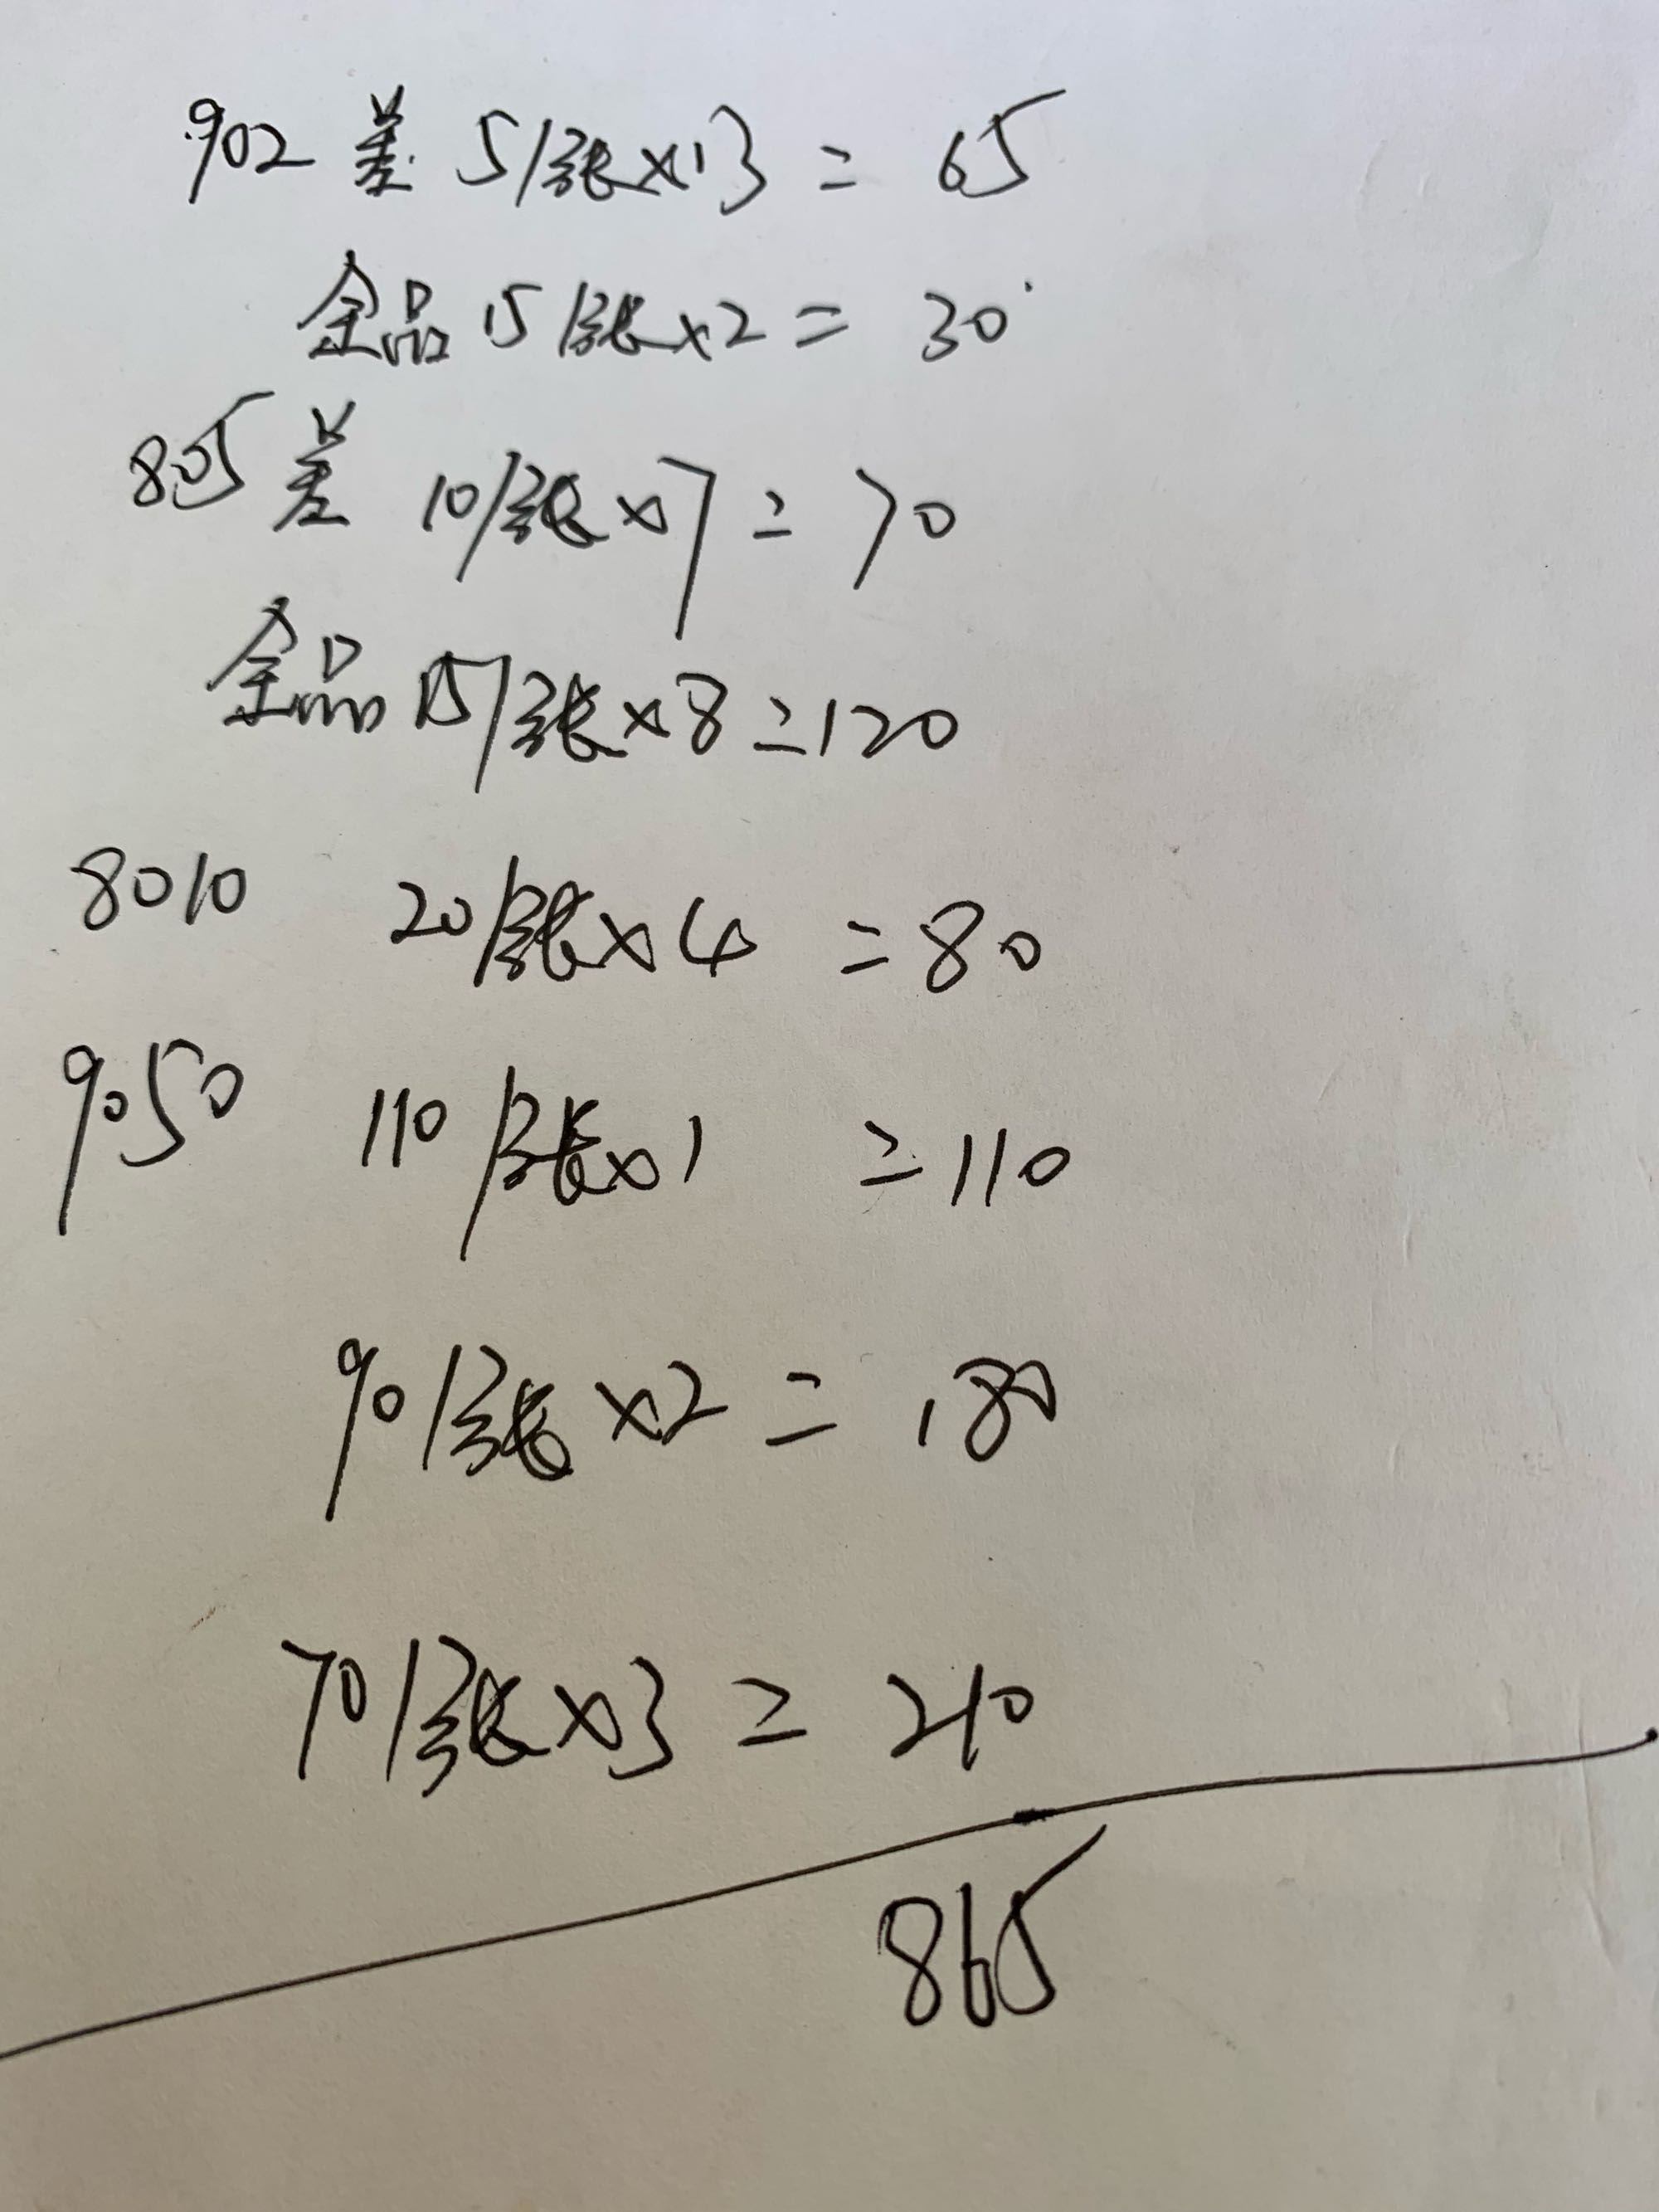 902 差 5/张×13 = 65
全品 15/张×2 = 30
805 差 10/张×7 = 70
全品 15/张×8 = 120
8010 20/张×4 = 80
9050 110/张×1 = 110
90/张×2 = 180
70/张×3 = 210
865